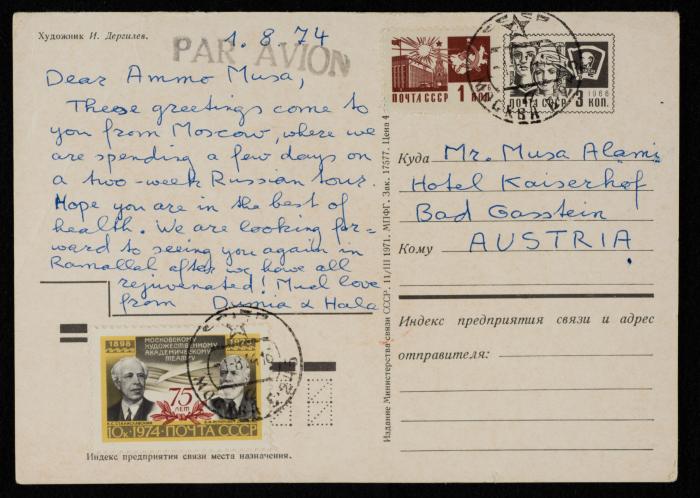 Художник И. Дергилев.
1.8.74
PAR AVION
Dear Ammo Musa,
These greetings come to
you from Moscow, where we
are spending a few days on
a two-week Russian tour.
Hope you are in the best of
health. We are looking for-
ward to seeing you again in
Ramallah after we have all
rejuvenated! Much love
from Dumia & Hala
ПОЧТА СССР 1 КОП.
1966
ПОЧТА СССР 3 КОП.
МОСКВА
Куда Mr. Musa Alami
Hotel Kaiserhof
Bad Gasstein
Кому AUSTRIA
Индекс предприятия связи и адрес
отправителя:
Издание Министерства связи СССР. 11/III 1971. МПФГ. Зак. 17577. Цена 4
1898
МОСКОВСКОМУ
ХУДОЖЕСТВЕННОМУ
АКАДЕМИЧЕСКОМУ
ТЕАТРУ
75 ЛЕТ
К.С.СТАНИСЛАВСКИЙ
10к. 1974 ПОЧТА СССР
МОСКВА
Индекс предприятия связи места назначения.